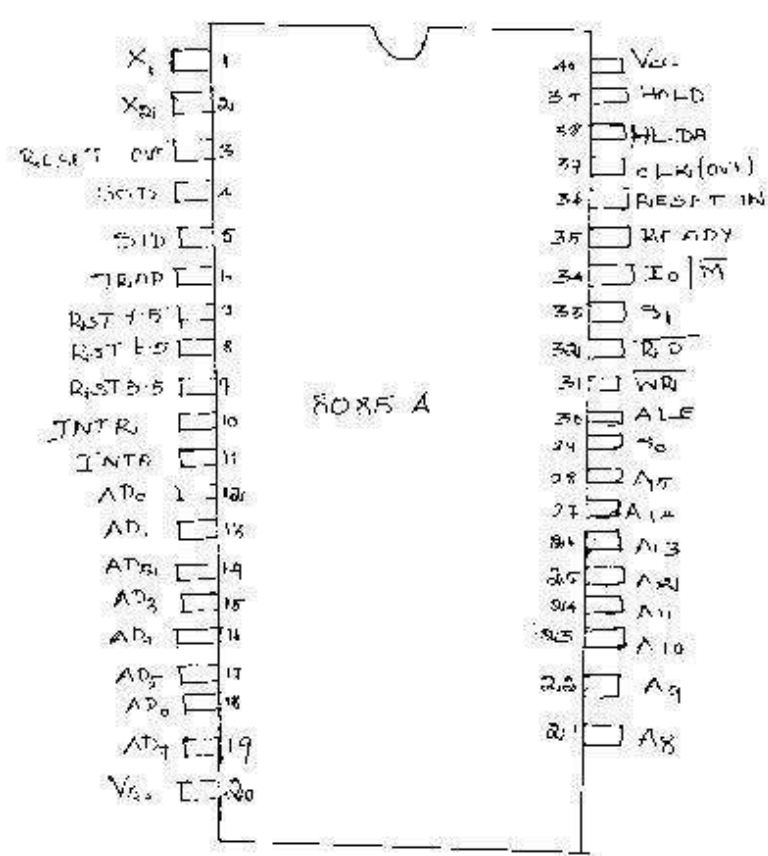 X1 1
X2 2
RESET OUT 3
SOD 4
SID 5
TRAP
RST 7.5
RST 6.5 8
RST 5.5
INTR 10
INTA 11
AD0 12
AD1 13
AD2 14
AD3 15
AD4
AD5 17
18
AD7 19
Vss 20
8085 A
40 Vcc
HOLD
38 HLDA
37 CLK(OUT)
36 RESET IN
35 READY
34 IO/M
33 S1
32 RD
31 WR
30 ALE
29 S0
28 A15
27 A14
26 A13
25 A12
24 A11
23 A10
22 A9
21 A8